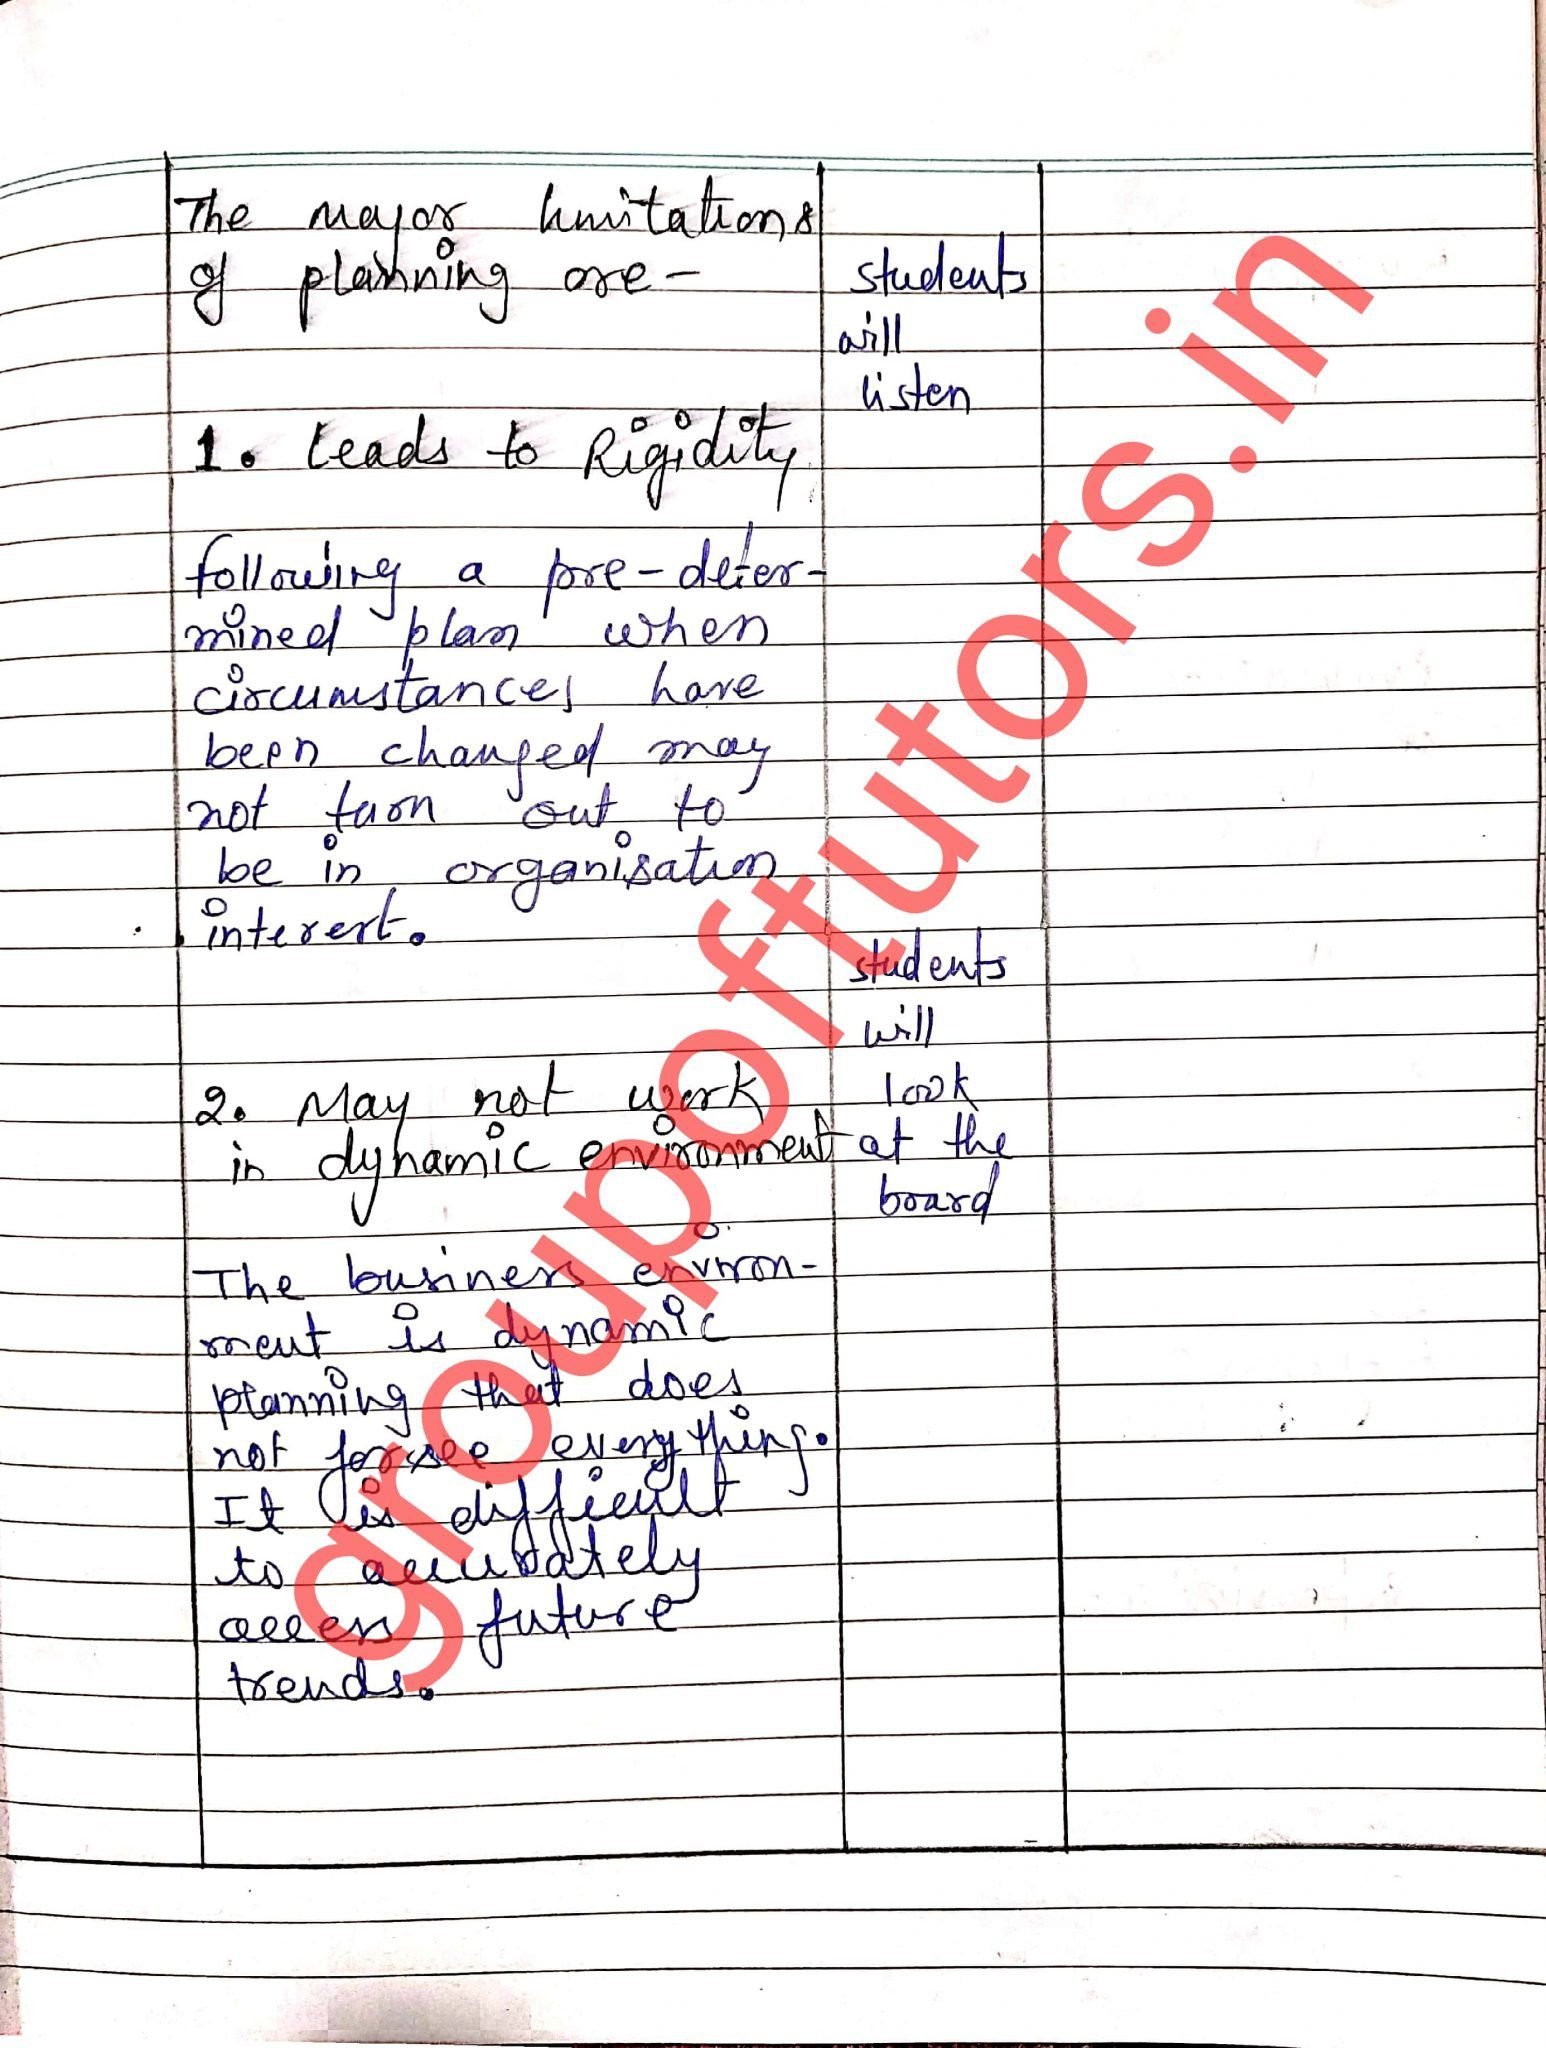 The major limitations
of planning are -
1. Leads to Rigidity
following a pre-deter-
mined plan when
circumstances have
been changed may
not turn out to
be in organisation
interest.
2. May not work
in dynamic environment
The business environ-
ment is dynamic
planning that does
not forsee everything.
It is difficult
to accurately
access future
trends.
students
will
listen
students
will
look
at the
board
groupoftutors.in